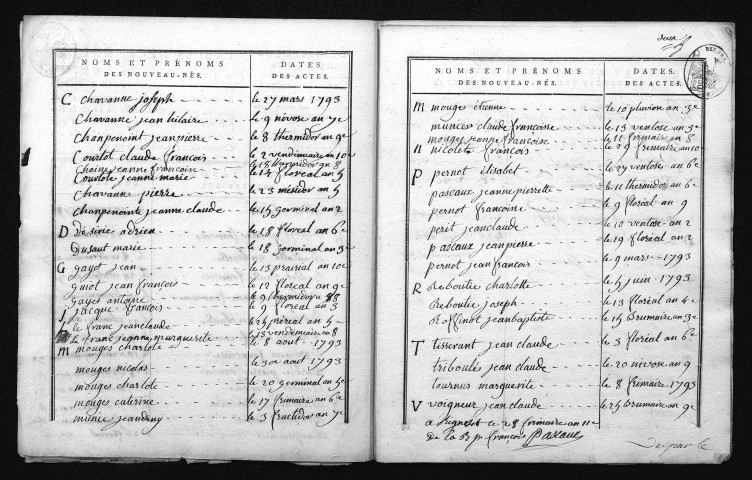 NOMS ET PRÉNOMS
DES NOUVEAU-NÉS.
DATES
DES ACTES.
C chavanne joseph le 27 mars 1793
Chavanne jean hilaire le 9 nivose an 7e
Chonpenoint jeanpierre le 8 thermidor an 9e
Courtot claude francois le 2 vendemiaire an 10e
Chaine jeanne francoise le 18 thermidor an 8
Courtote jeanne marie le 14 floreal an 5
Chavanne pierre le 23 mesidor an 5
chonpenointe jeanne claude le 15 germinal an 2
D désirie adrien le 18 floreal an 6e
dusaut marie le 18 germinal an 3e
G gayot jean le 13 prairial an 10e
guiot jean francois le 12 floreal an 9e
gayet antoine le 9 thermidor an 8
J jacque francois le 9 floreal an 3
le franc jeanclaude le 24 prereal an 5
le franc jeanne marguerete le 13 vendémiaire an 8
M mouges charlote le 8 aout 1793
mouges nicolas le 30 aout 1793
mouges charlote le 20 germinal an 5e
mouges caterine le 17 frimaire an 6e
munie jeandeny le 3 fructidor an 7e
deux
NOMS ET PRÉNOMS
DES NOUVEAU-NÉS.
DATES
DES ACTES.
M mouges étienne le 10 pluviou an 3e
munier claude francoise le 13 ventose an 3e
mouges jeanne francoise le 11 frimaire an 8
N nicolete francois le 29 frimaire an 10
P pernot elisabet le 27 ventose an 6e
pascaux jeanne pierrette le 11 thermidor an 6e
pernot francoise le 9 floréal an 9
petit jeanclaude le 10 ventose an 2
pascaux jeanpierre le 19 floréal an 2
pernot jean francois le 9 mars 1793
R Reboutie charlotte le 5 juin 1793
Reboutie joseph le 13 floréal an 4e
Roffinot jeanbaptiste le 15 brumaire an 3e
T tisserant jean claude le 3 floréal an 6e
triboulé jean claude le 20 nivose an 9
tournus marguerite le 8 frimaire 1793
V voigneur jean claude le 25 brumaire an 9e
le 28 frimaire an 11e
francois pascaux